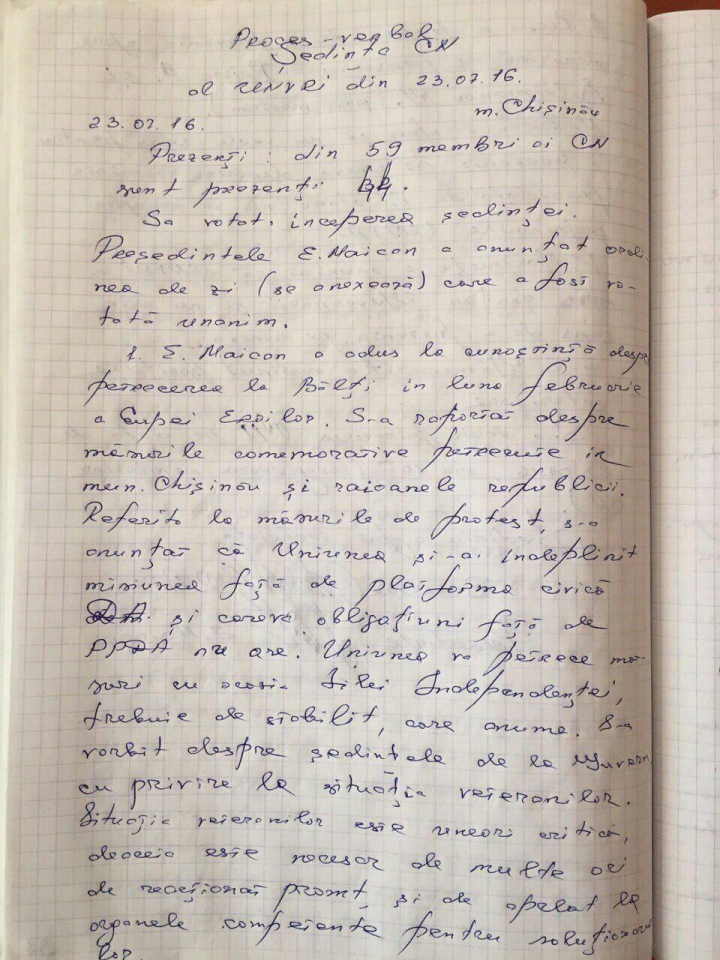 Proces-verbal
Ședința CN
al UNVRI din 23.07.16.
m. Chișinău
23.07.16.
Prezenți: din 59 membri ai CN
sunt prezenți 44.
Sa votat începerea ședinței.
Președintele E. Maican a anunțat ordi-
nea de zi (se anexează) care a fost vo-
tată unanim.
1. E. Maican a adus la cunoștință despre
petrecerea la Bălți in luna februarie
a Cupei Eroilor. S-a raportat despre
măsurile comemorative petrecute in
mun. Chișinău și raioanele republicii.
Referito la măsurile de protest, s-a
anunțat că Uniunea și-a indeplinit
misiunea față de platforma civică
DA și careva obligațiuni față de
PPDA nu are. Uniunea va petrece mă-
suri cu ocazia Zilei Independenței,
trebuie de stabilit, care anume. S-a
vorbit despre ședintele de la Guvern
cu privire la situația veteranilor.
Situația veteranilor este uneori critică,
deaceia este necesar de multe ori
de reacționat promt, și de apelat la
organele competente pentru soluționarea
lor.